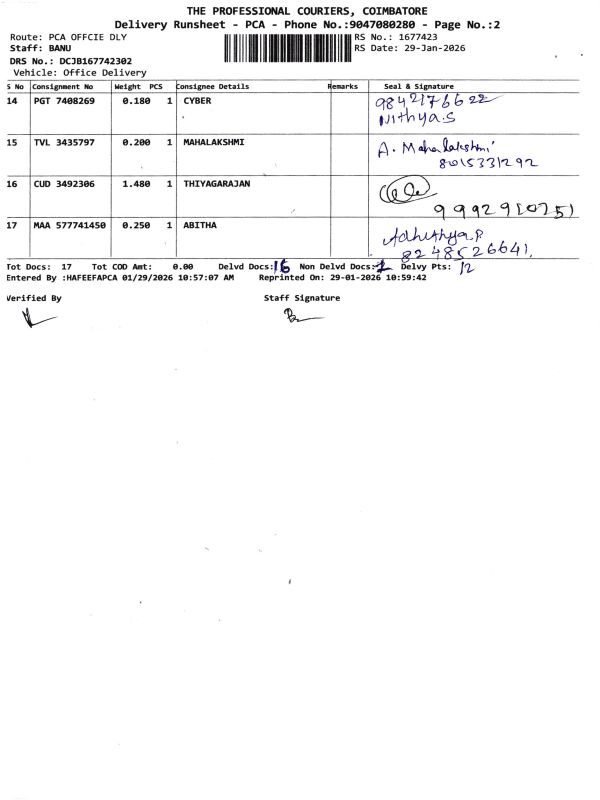 THE PROFESSIONAL COURIERS, COIMBATORE
Delivery Runsheet - PCA - Phone No.:9047080280 - Page No.:2
Route: PCA OFFCIE DLY RS No.: 1677423
Staff: BANU RS Date: 29-Jan-2026
DRS No.: DCJB167742302
Vehicle: Office Delivery
S No Consignment No Weight PCS Consignee Details Remarks Seal & Signature
14 PGT 7408269 0.180 1 CYBER 9842176622
Nithya.S
15 TVL 3435797 0.200 1 MAHALAKSHMI A. Mahalakshmi
8015331292
16 CUD 3492306 1.480 1 THIYAGARAJAN
9992910751
17 MAA 577741450 0.250 1 ABITHA Adhithya.P
8248526641.
Tot Docs: 17 Tot COD Amt: 0.00 Delvd Docs: 16 Non Delvd Docs: 1 Delvy Pts: 12
Entered By :HAFEEFAPCA 01/29/2026 10:57:07 AM Reprinted On: 29-01-2026 10:59:42
Verified By Staff Signature